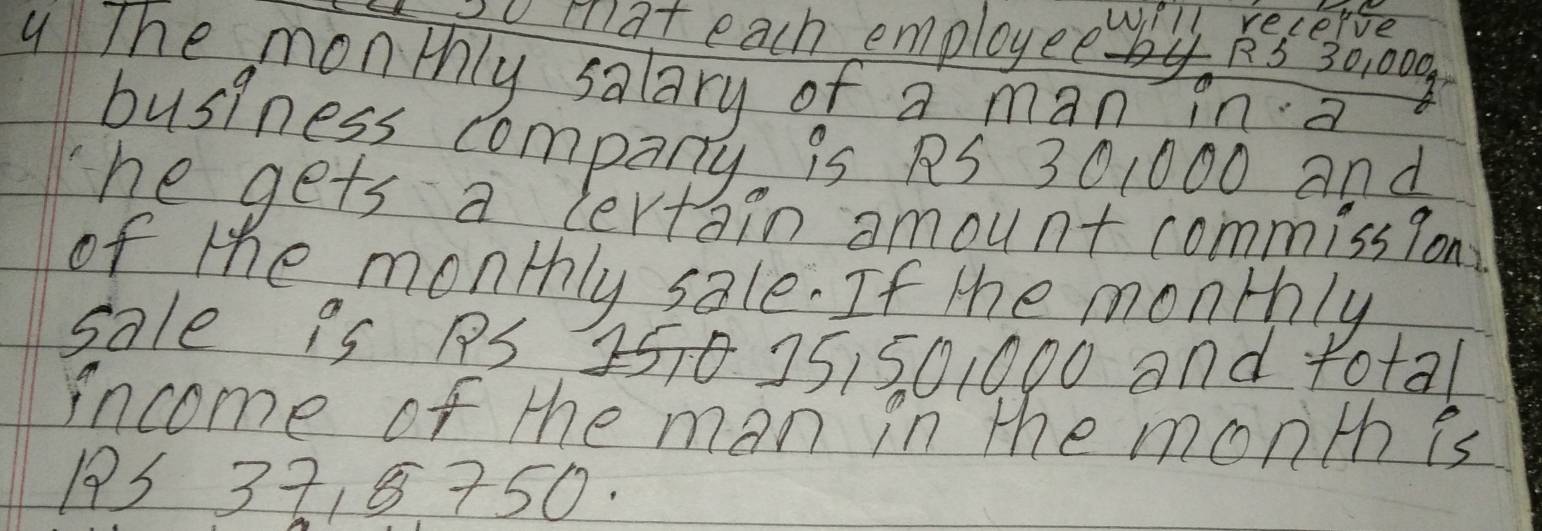 that each employee by will receive RS 30,000
4 The monthly salary of a man in a
business company is RS 30,000 and
he gets a certain amount commission
of the monthly sale. If the monthly
sale is RS 15,0 15,50,000 and total
income of the man in the month is
RS 37,8750.